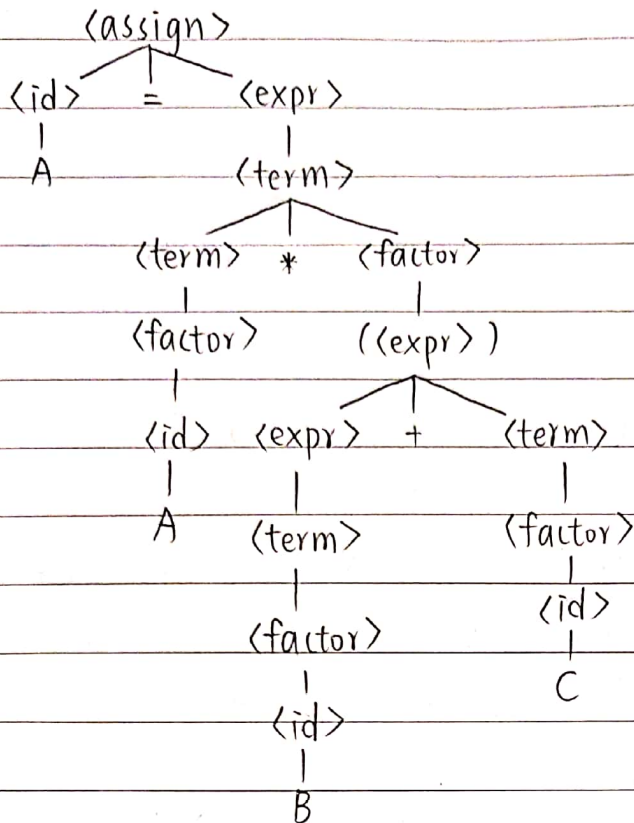 <assign>
<id> = <expr>
A <term>
<term> * <factor>
<factor> (<expr>)
<id> <expr> + <term>
A <term> <factor>
<id>
<factor>
C
<id>
B